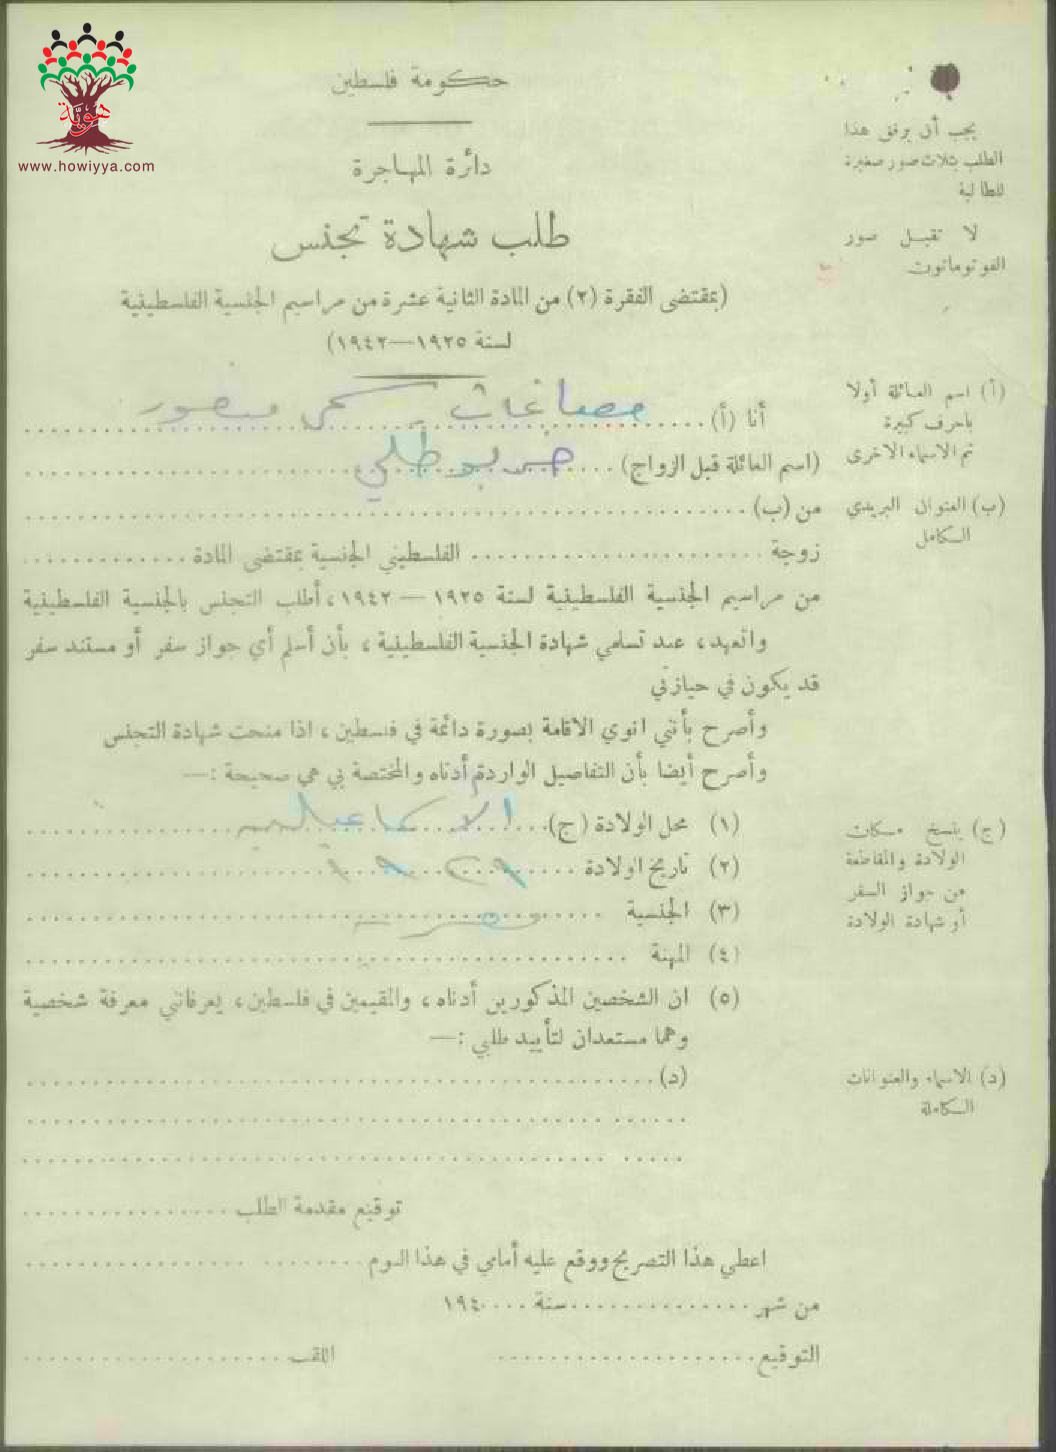 هويّة
www.howiyya.com
حكومة فلسطين
دائرة المهاجرة
طلب شهادة تجنس
(بمقتضى الفقرة (٢) من المادة الثانية عشرة من مراسيم الجنسية الفلسطينية
لسنة ١٩٢٥—١٩٤٢)
يجب أن يرفق هذا
الطلب بثلاث صور صغيرة
للطالبة
لا تقبل صور
الفوتوماتون
أنا (أ) سحر منصور
(اسم العائلة قبل الزواج) خربوطلي
من (ب)
زوجة الفلسطيني الجنسية بمقتضى المادة
من مراسيم الجنسية الفلسطينية لسنة ١٩٢٥ — ١٩٤٢، أطلب التجنس بالجنسية الفلسطينية
واتعهد، عند تسلمي شهادة الجنسية الفلسطينية، بأن أسلم أي جواز سفر أو مستند سفر
قد يكون في حيازتي
وأصرح بأنني انوي الاقامة بصورة دائمة في فلسطين، اذا منحت شهادة التجنس
وأصرح أيضا بأن التفاصيل الواردة أدناه والمختصة بي هي صحيحة :—
(١) محل الولادة (ج) الاسماعيلية
(٢) تاريخ الولادة
(٣) الجنسية
(٤) المهنة
(٥) ان الشخصين المذكورين أدناه، والمقيمين في فلسطين، يعرفانني معرفة شخصية
وهما مستعدان لتأييد طلبي :—
(د)
توقيع مقدمة الطلب
اعطي هذا التصريح ووقع عليه أمامي في هذا اليوم
من شهر سنة ١٩٤
التوقيع اللقب
(أ) اسم العائلة أولا
باحرف كبيرة
ثم الاسماء الاخرى
(ب) العنوان البريدي
الكامل
(ج) ينسخ مكان
الولادة والمقاطعة
من جواز السفر
أو شهادة الولادة
(د) الاسماء والعنوانات
الكاملة